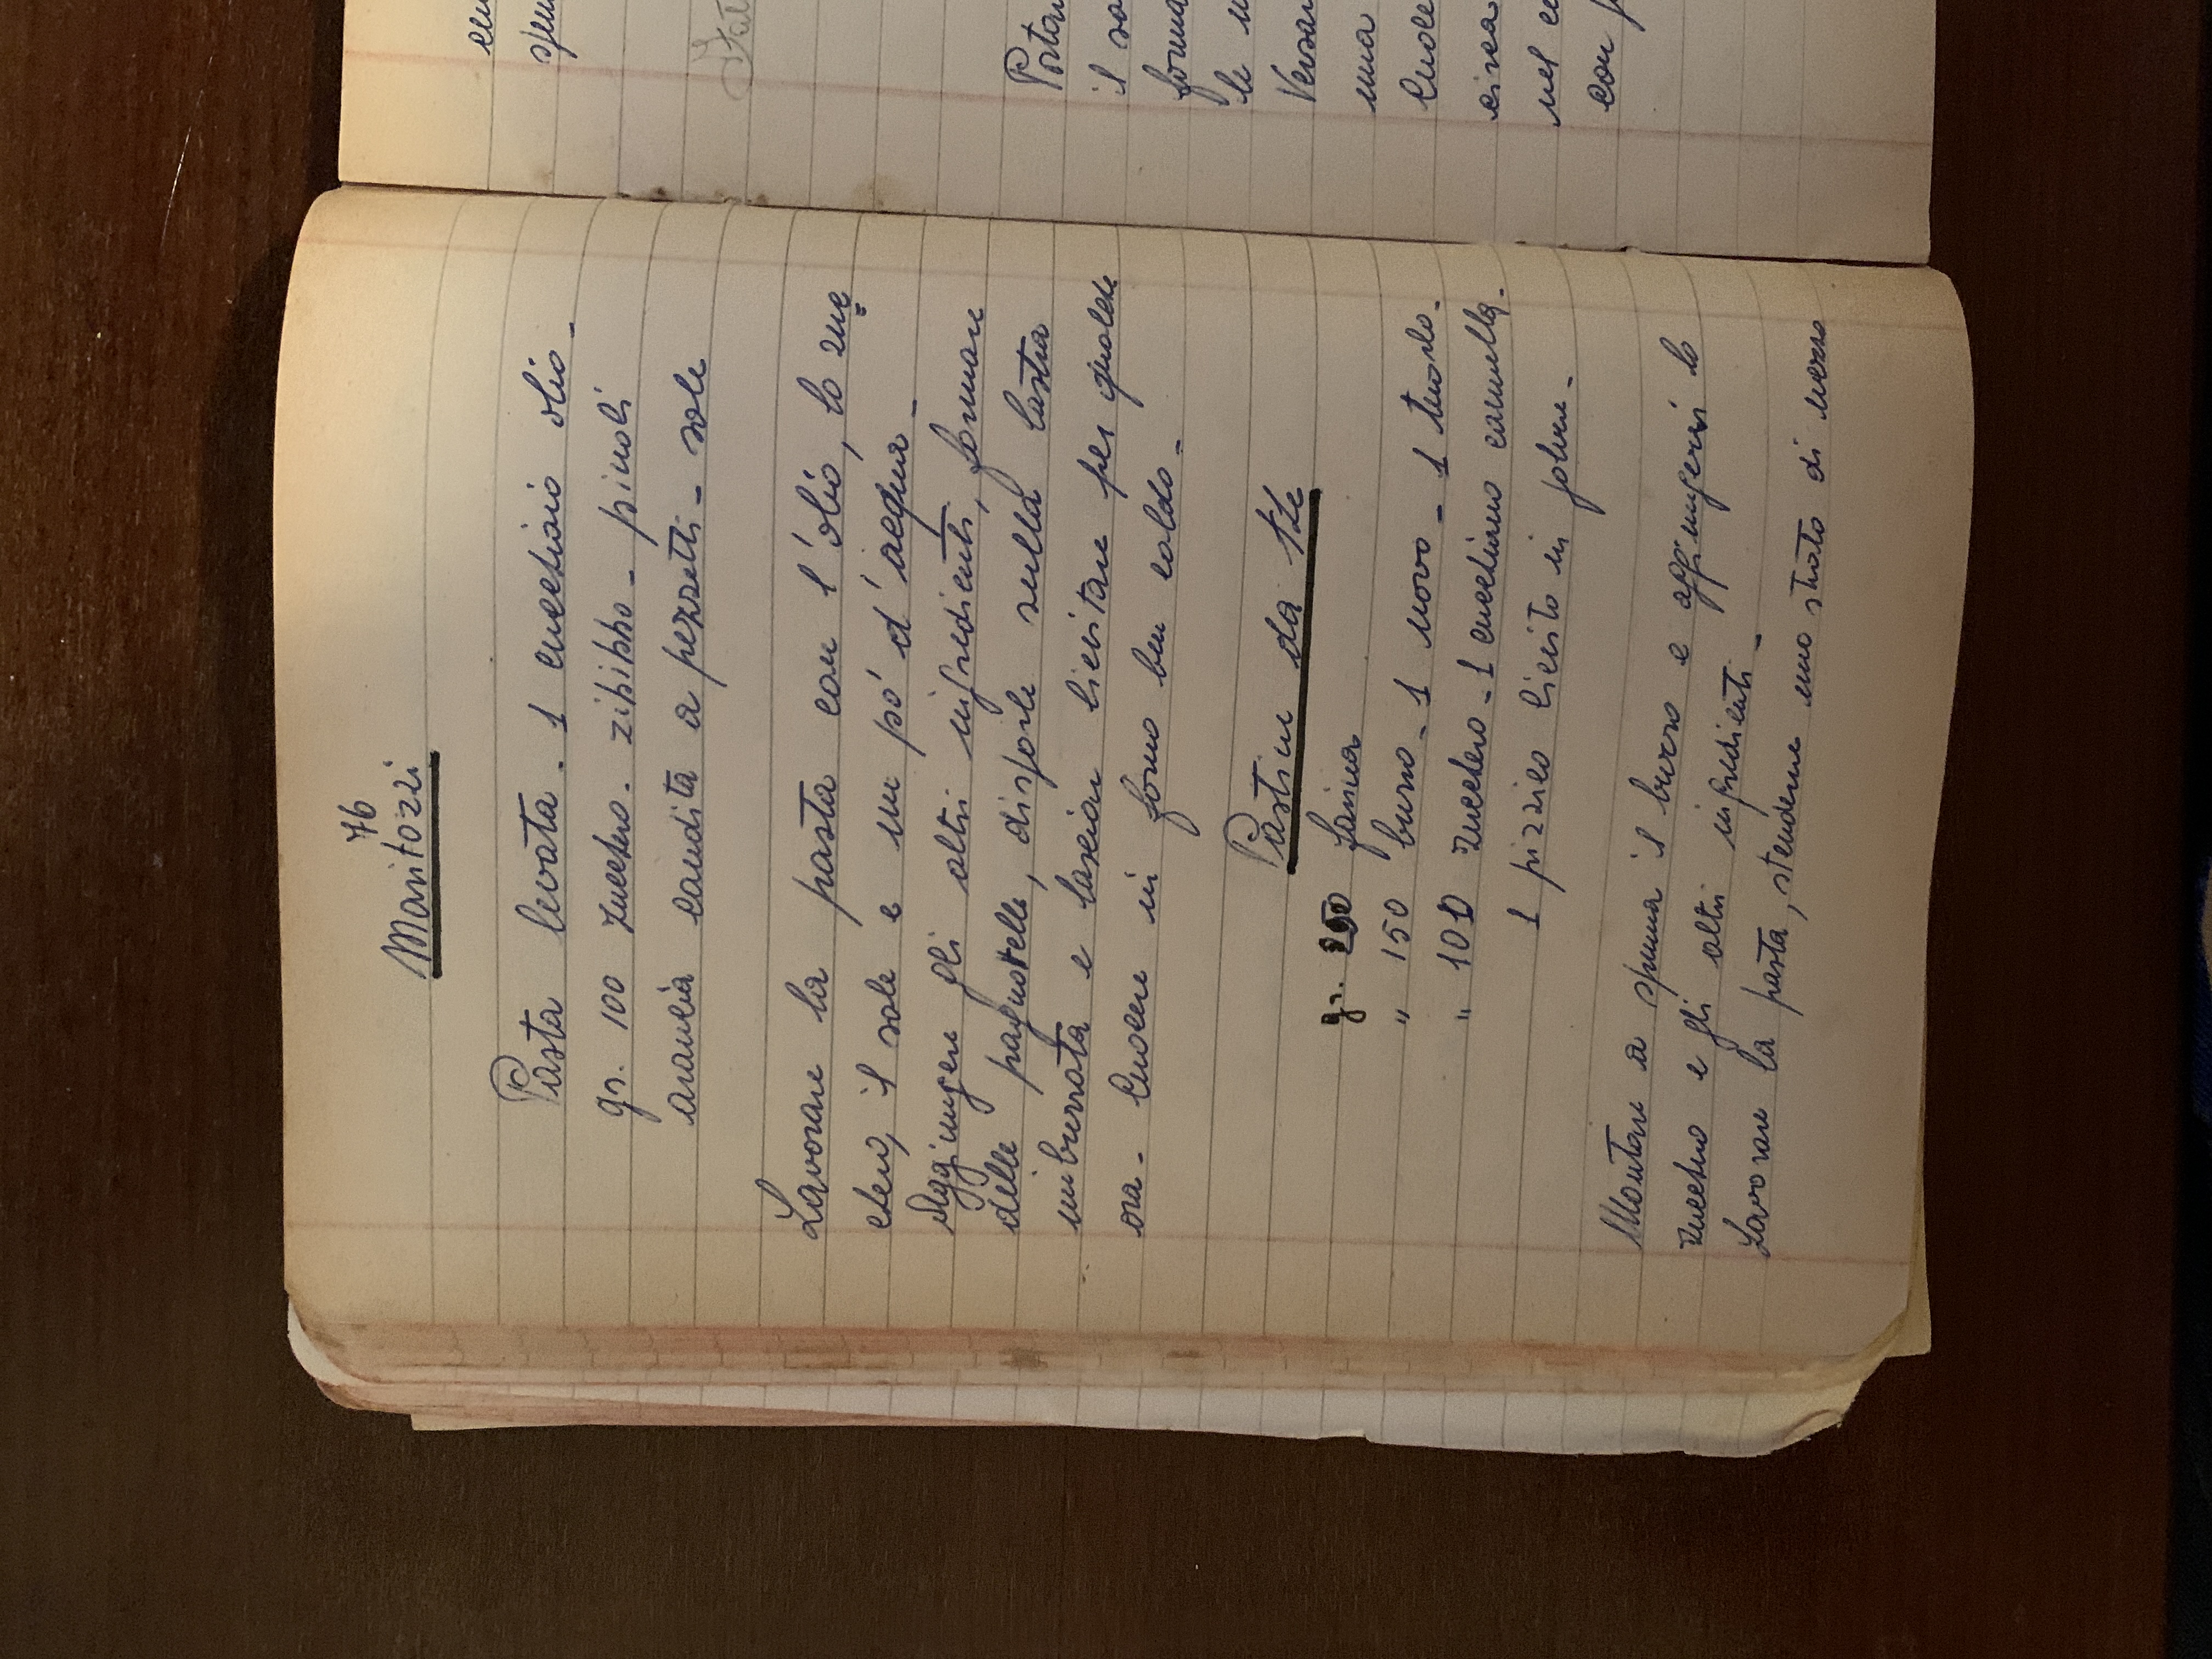 76
Maritozzi
Pasta levata - 1 cucchiaio olio -
gr. 100 zucchero - zibibbo - pinoli
arancia candita a pezzetti - sale
Lavorare la pasta con l'olio, lo zuc=
chero, il sale e un pó d'acqua -
Aggiungere gli altri ingredienti, formare
delle pagnottelle, disporle sulla lastra
imburrata e lasciar lievitare per qualche
ora - Cuocere in forno ben caldo -
Pastine da the
gr. farina
" 150 burro - 1 uovo - 1 tuorlo -
" 100 zucchero - 1 cucchiaino cannella -
1 pizzico lievito in polvere -
Montare a spuma il burro e aggiungervi lo
zucchero e gli altri ingredienti -
Lavorare la pasta, stenderne uno strato di mezzo
il
una
circa
con